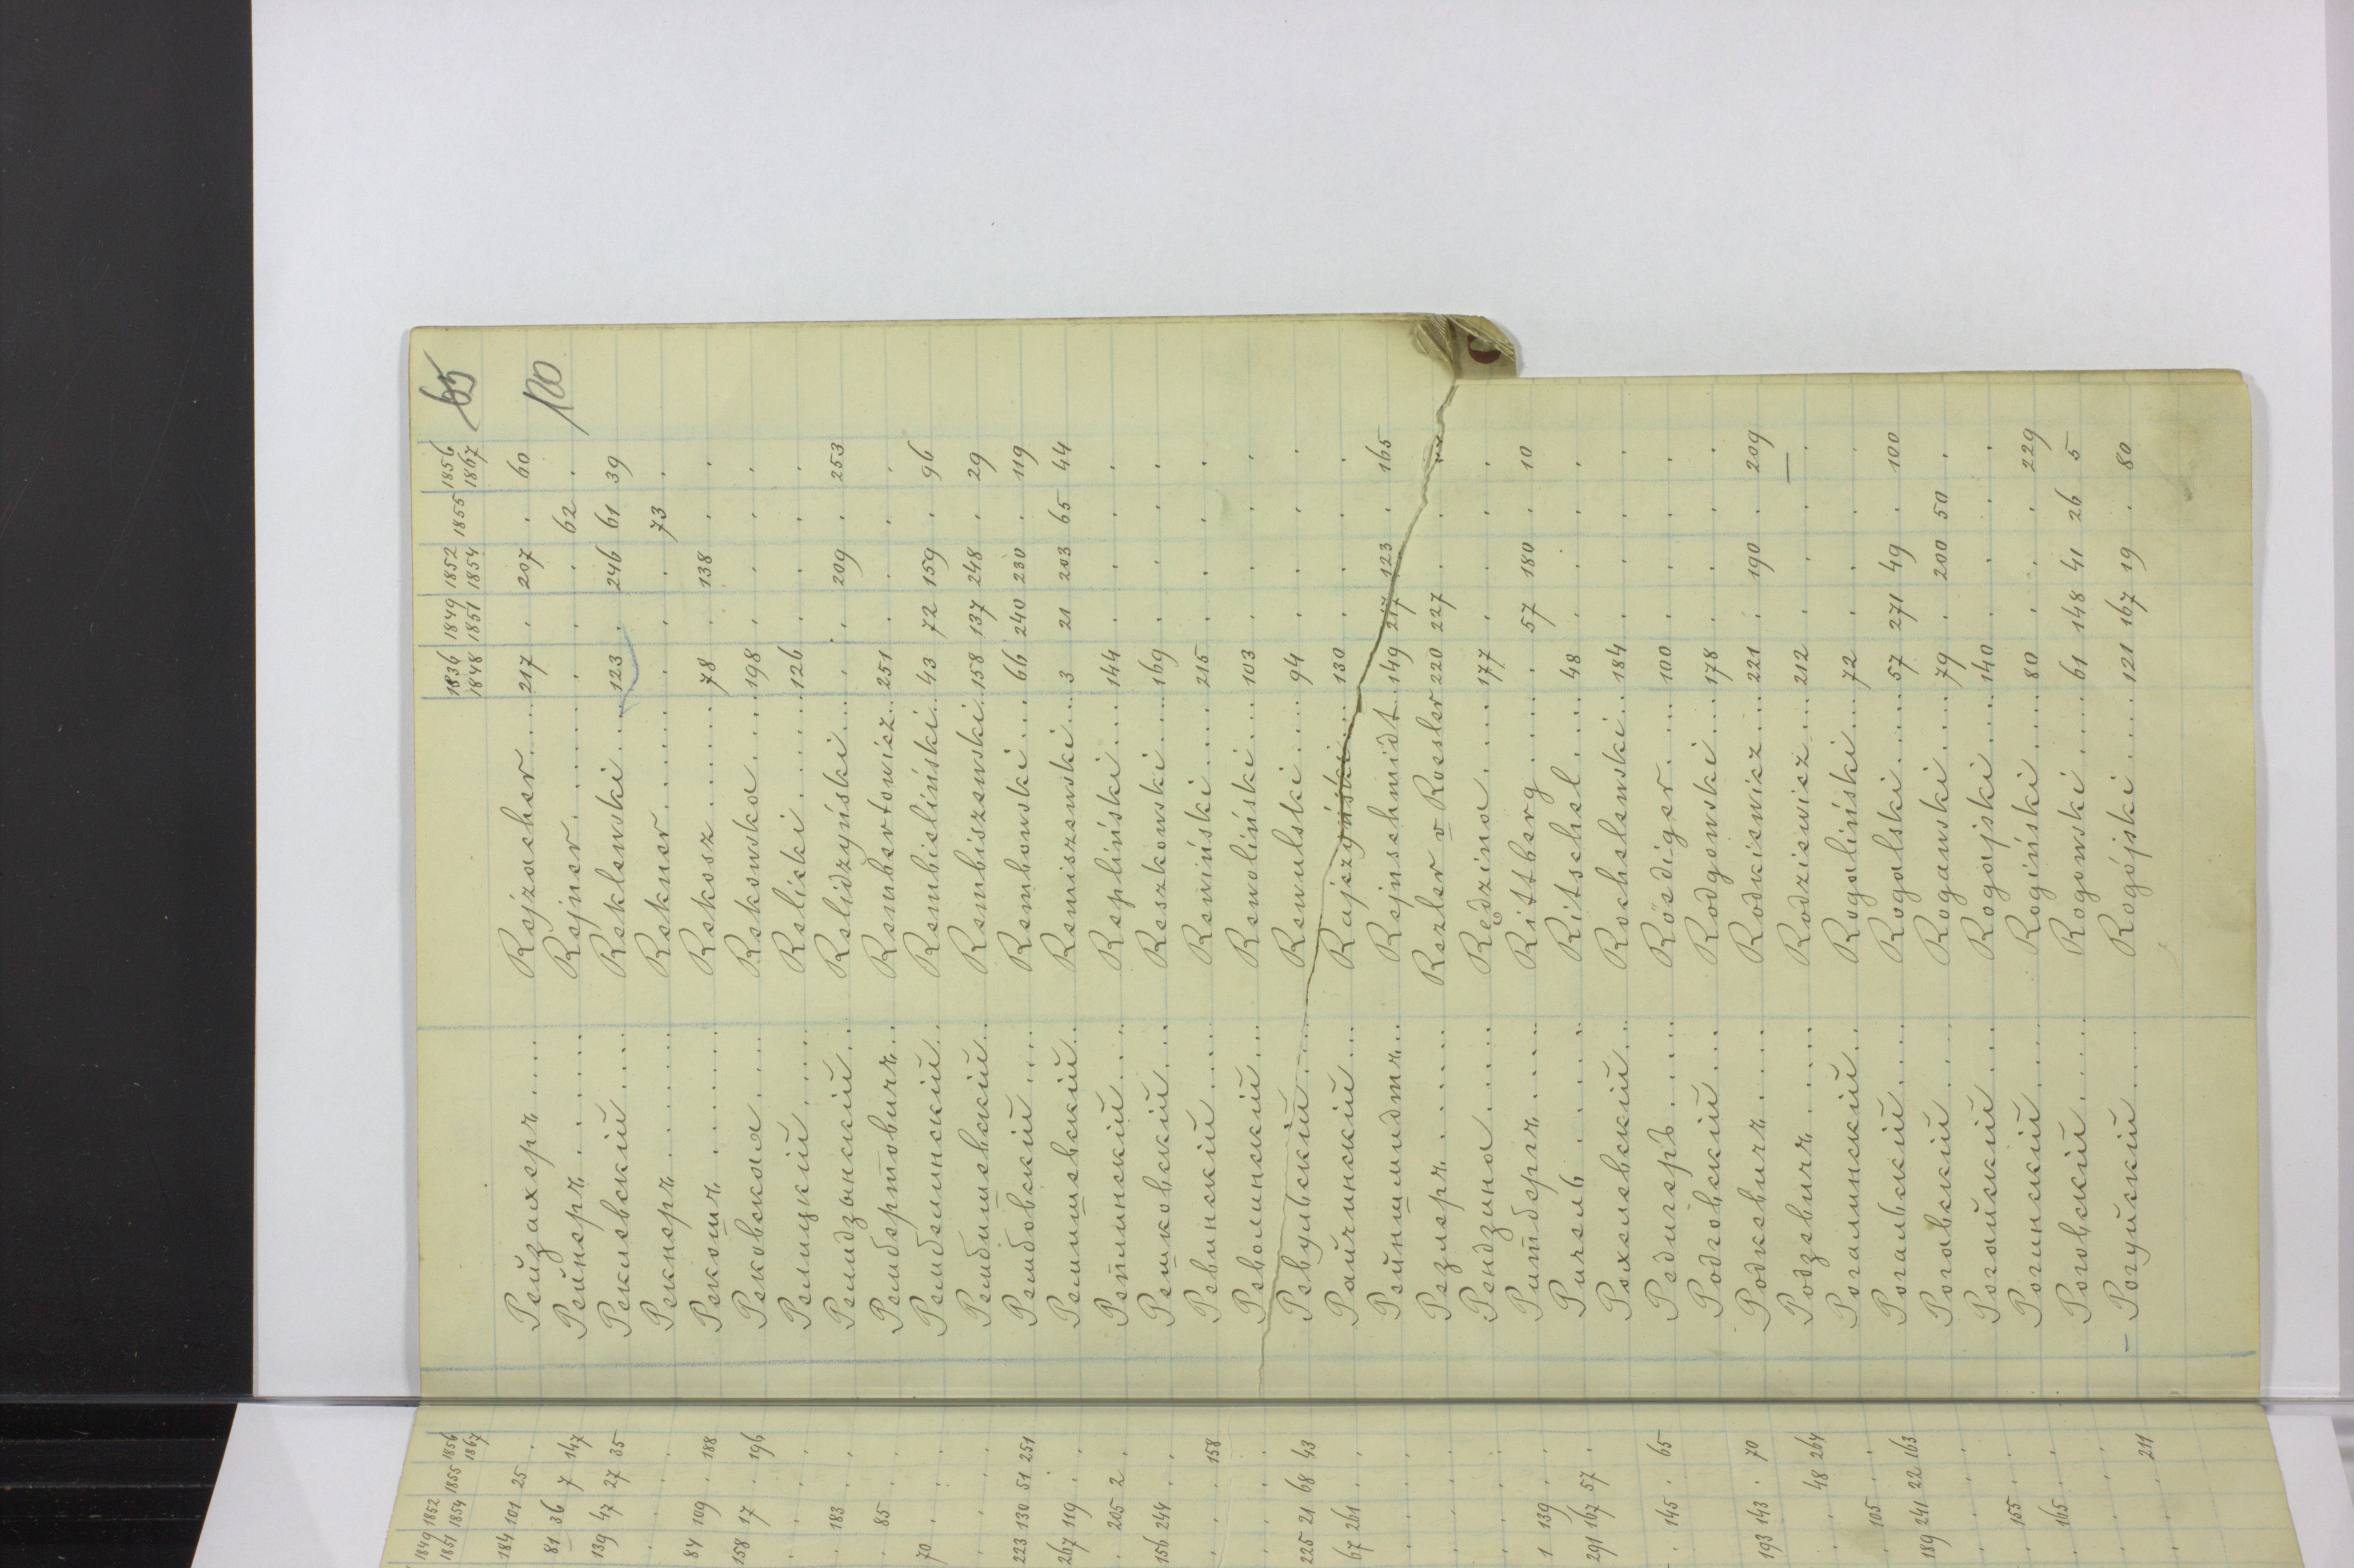 65
100
1836 1848 1849 1851 1852 1854 1855 1856 1867
Рейзахеръ..... Rejzacher..... 217 . 207 . 60
Рейнеръ....... Rejner........ . . . 62 .
Реклевскій.... Reklewski... 123 . 246 61 39
Рекнеръ....... Rekner....... . . . 73 .
Рекошъ....... Rekosz....... 78 . 138 . .
Рековская.... Rekowska.... 198 . . . .
Релицкій..... Relicki..... 126 . . . .
Релидзынскій.. Relidzyński.. . . 209 . 253
Рембертовичъ.. Rembertowicz.. 251 . . . .
Рембелинскій.. Rembieliński.. 43 72 159 . 96
Рембишевскій.. Rembiszewski.. 158 137 248 . 29
Рембовскій.... Rembowski... 66 240 230 . 119
Ремишевскій.. Remiszewski... 3 21 203 65 44
Реплинскій... Repliński... 144 . . . .
Решковскій... Reszkowski... 169 . . . .
Ревинскій.... Rewiński.... 215 . . . .
Револинскій.. Rewoliński... 103 . . . .
Ревульскій... Rewulski.... 94 . . . .
Райчинскій... Rajczyński... 130 . . . .
Рейншмидтъ.. Rejnschmidt.. 149 217 123 . 165
Резлеръ...... Rezler v Roesler 220 227 . .
Рендзина..... Rędzina..... 177 . . . .
Ритбергъ..... Rittberg..... . 57 180 . 10
Ричель...... Ritschel.... 48 . . . .
Рохелевскій.. Rochelewski.. 184 . . . .
Редигеръ..... Rösdiger.... 100 . . . .
Родговскій... Rodgowski... 178 . . . .
Родкевичъ.... Rodkiewicz... 221 . 190 . 209
Родзевичъ.... Rodziewicz... 212 . . . .
Рогалинскій.. Rogaliński... 72 . . . .
Рогальскій... Rogalski..... 57 271 49 . 100
Рогавскій.... Rogawski.... 79 . 200 50 .
Рогайскій.... Rogajski.... 140 . . . .
Рогинскій.... Rogiński.... 80 . . . 229
Роговскій.... Rogowski.... 61 148 41 26 5
– Рогуйскій... Rogójski.... 121 167 19 . 80
1849 1851 1852 1854 1855 1856 1867
184 101 25 .
81 36 7 147
139 47 27 35
. . . .
84 109 . 188
158 17 . 196
. . . .
. 183 . .
. 85 . .
70 . . .
. . . .
223 130 51 251
267 119 . .
. 205 2 .
156 244 . .
. . . 158
. . . .
225 21 68 43
67 261 . .
. . . .
. . . .
. . . .
1 139 . .
291 167 57 .
. 145 . 65
193 143 . 70
. . 48 264
. 105 . .
189 241 22 163
. . . .
. 155 . .
. 165 . .
. . . .
. . . 211